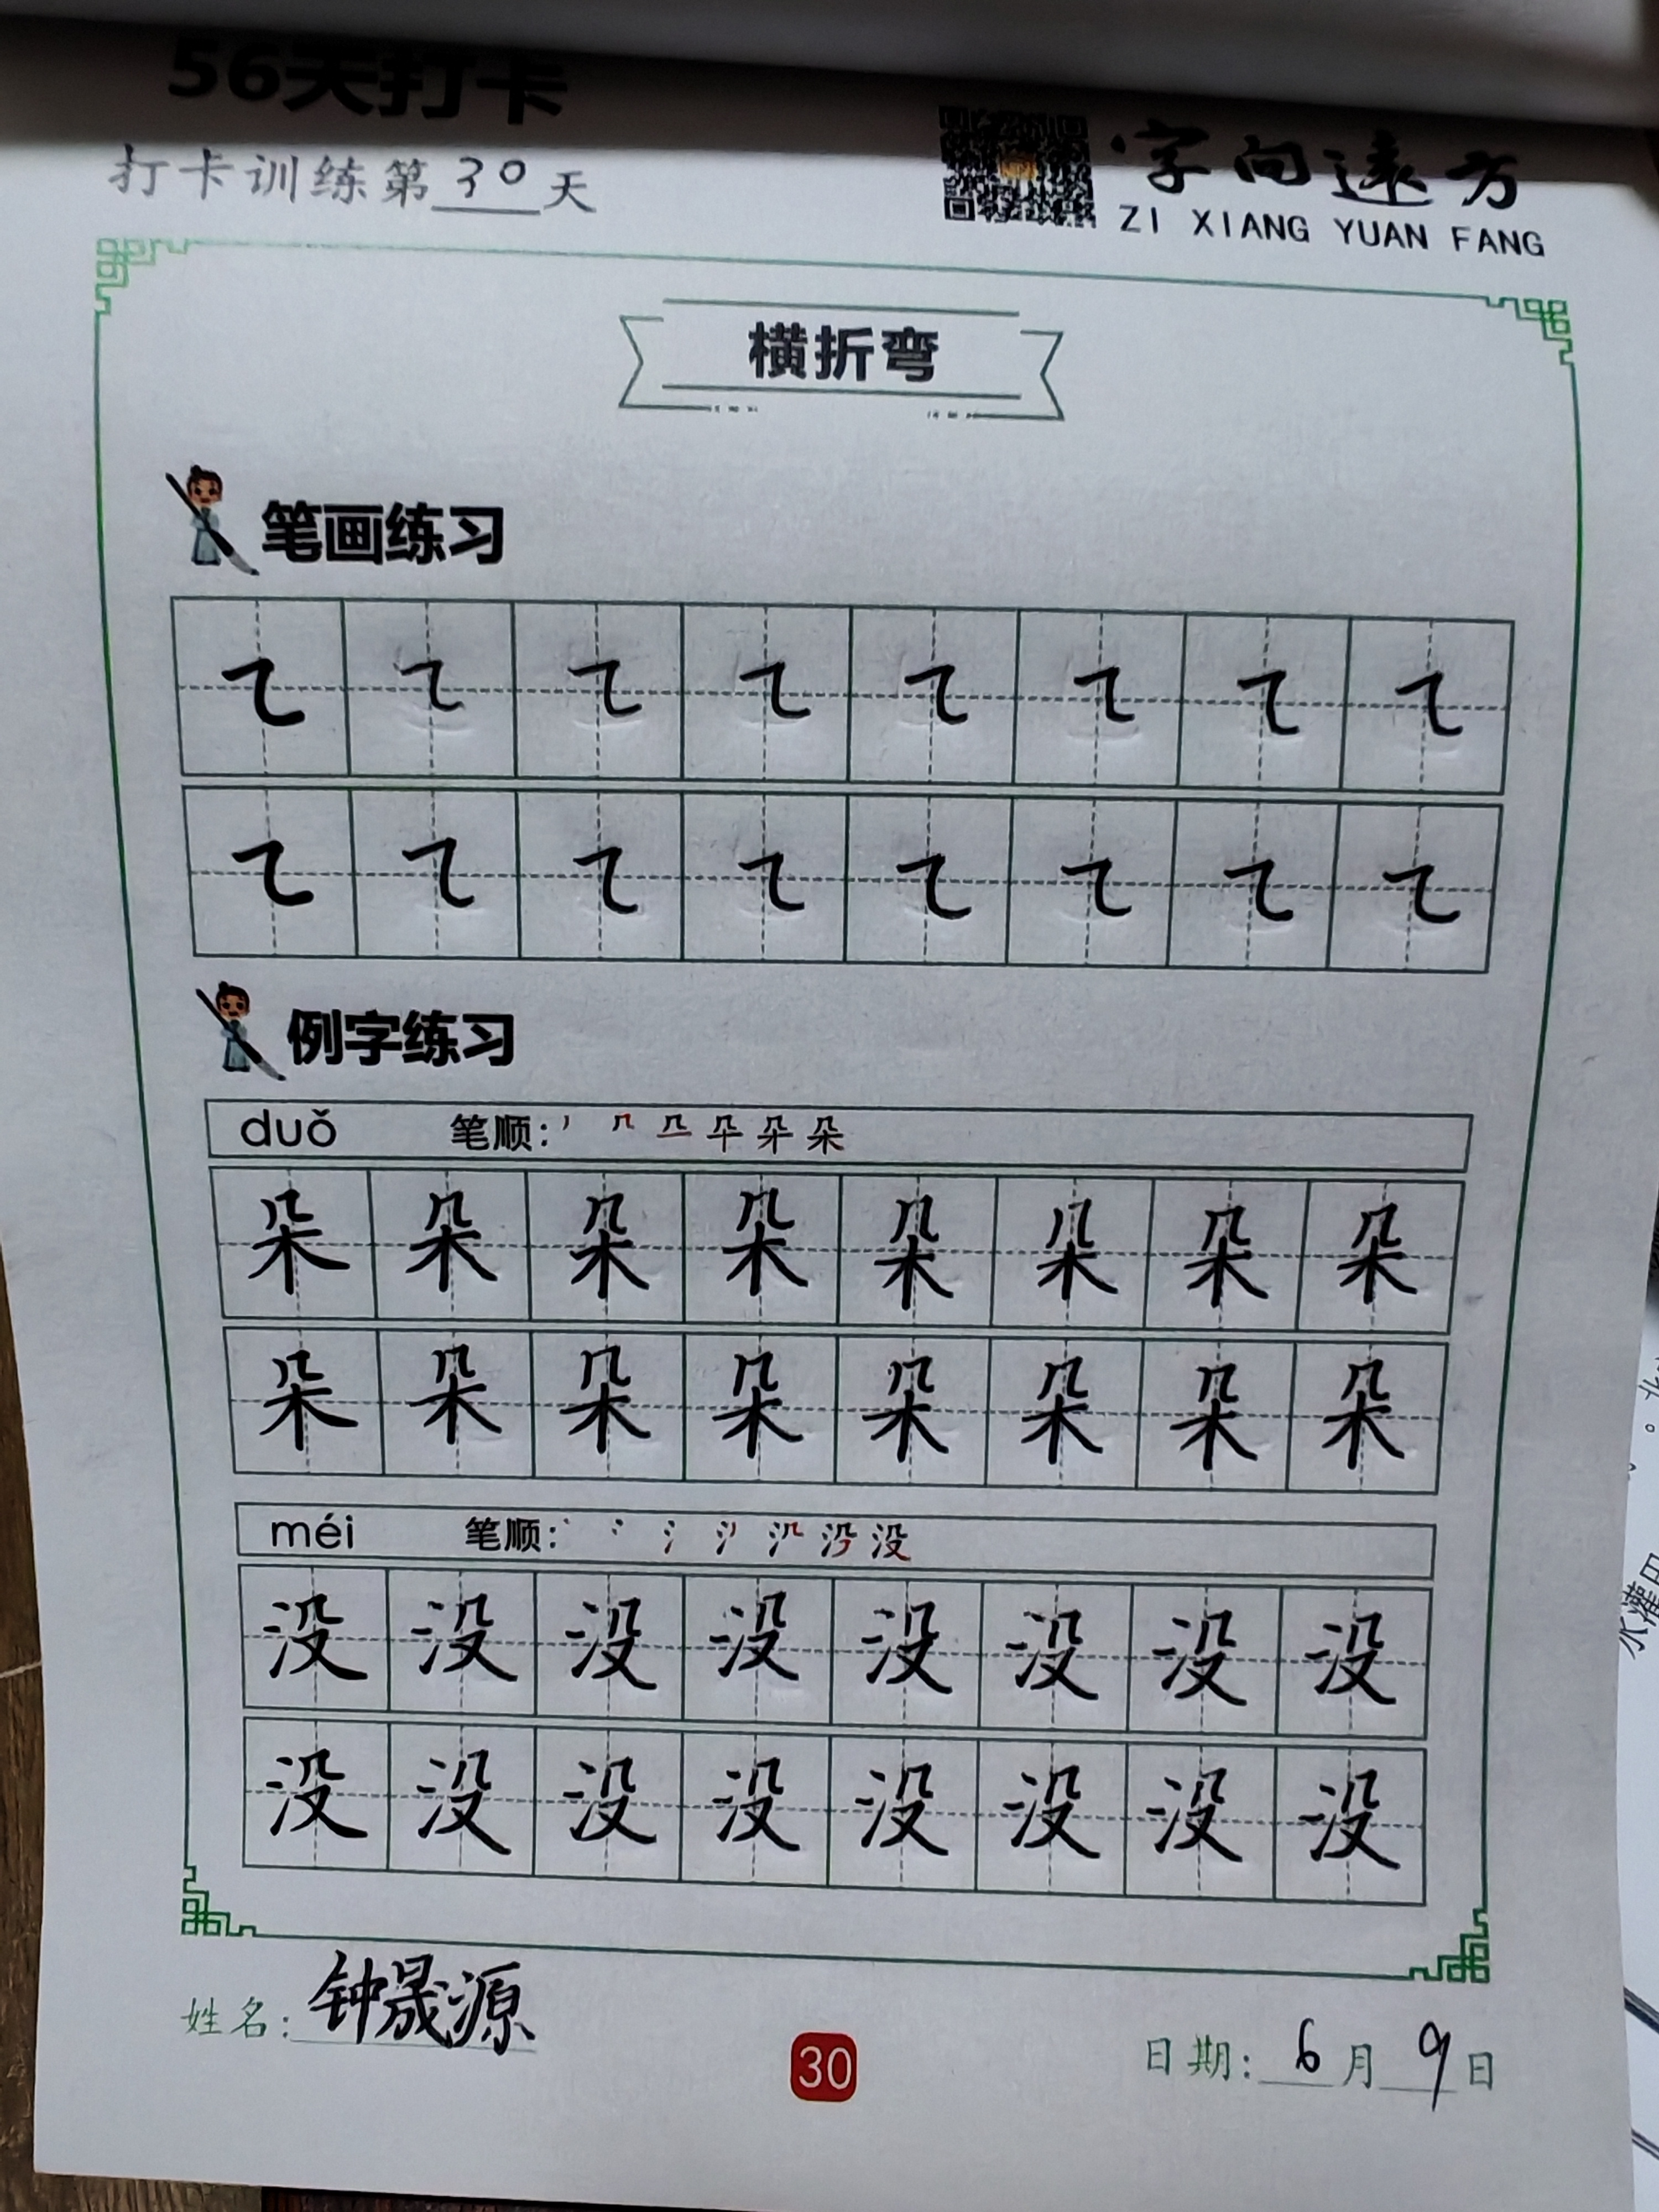 56天打卡
打卡训练第30天
字向远方
ZI XIANG YUAN FANG
横折弯
笔画练习
例字练习
duǒ 笔顺：
朵朵朵朵朵朵朵朵
朵朵朵朵朵朵朵朵
méi 笔顺：
没没没没没没没没
没没没没没没没没
姓名：钟晟源
30
日期：6月9日
水灌田